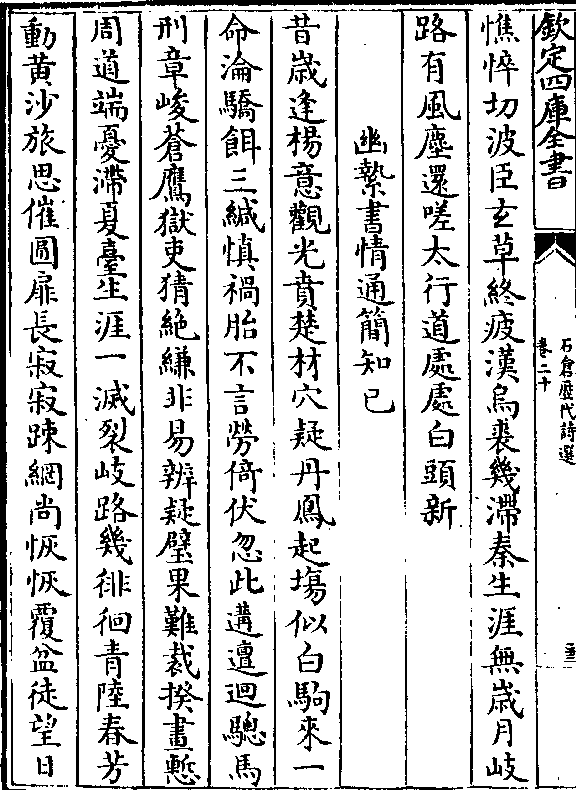 欽定四庫全書
石倉歴代詩選
卷二十
憔悴切波臣玄草終疲漢烏裘幾滯秦生涯無歳月岐
路有風塵還嗟太行道處處白頭新
幽縶書情通簡知已
昔歳逢楊意觀光賁楚材穴疑丹鳳起塲似白駒來一
命淪驕餌三緘慎禍胎不言勞倚伏忽此遘邅迴驄馬
刑章峻蒼鷹獄吏猜絶縑非易辨疑璧果難裁揆畫慙
周道端憂滯夏臺生涯一滅裂岐路幾徘徊青陸春芳
動黄沙旅思催圓扉長寂寂踈網尚恢恢覆盆徒望日